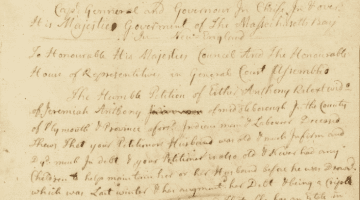 Capt General and Governour In Cheif In & over
His Majesties Government of The Massachusetts Bay
In New England
To Honourable His Majesties Council And The Honourable
House of Representatives in General Court Assembled
The Humble Petition of Esther Anthony Relict and
of Jeremiah Anthony of middleborough In the County
of Plymouth & Province afores. Indian man & Labourer Deceased
Shews That your Petitioner Husband was old & much Infirm and
Dyed much In debt & your Petitioner is also old & Never had any
Children to help maintain her or her Husband before he was Deceasd
which was Last winter & has augmented her Debt & being a Cripple